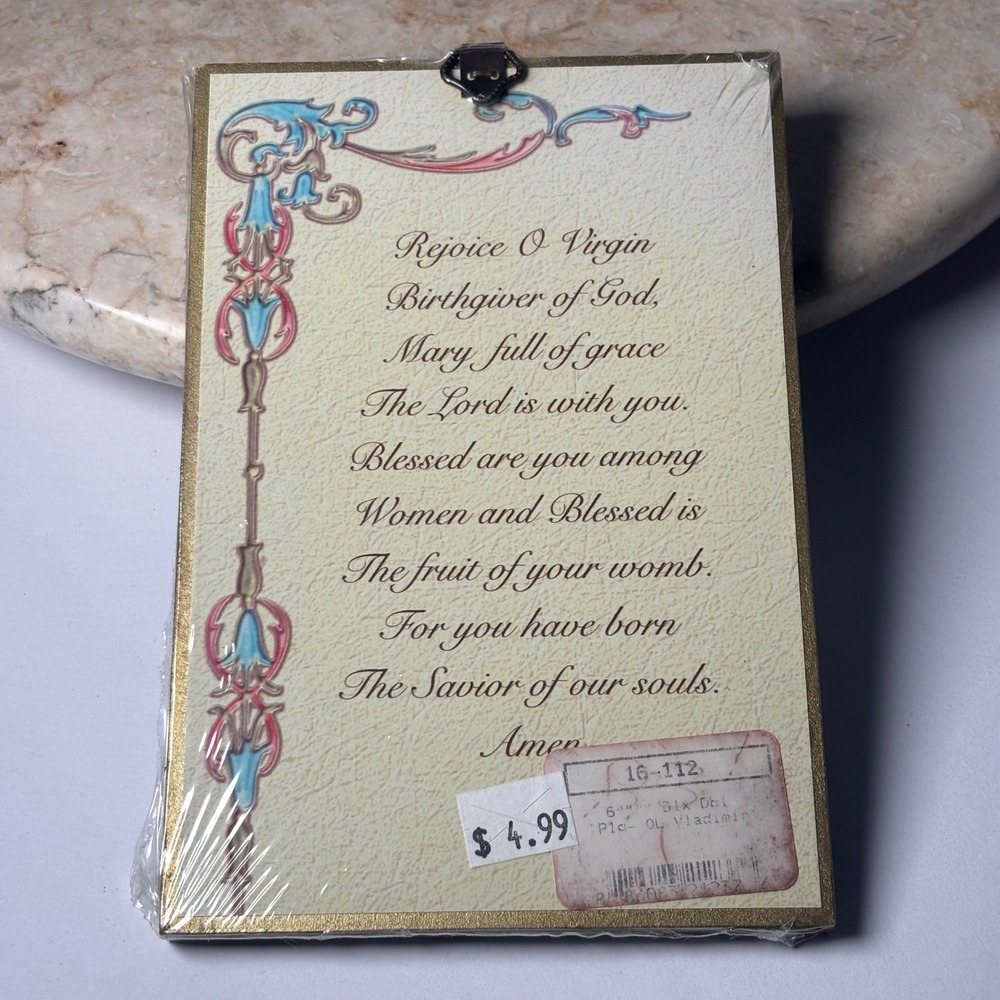 Rejoice O Virgin
Birthgiver of God,
Mary full of grace
The Lord is with you.
Blessed are you among
Women and Blessed is
The fruit of your womb.
For you have born
The Savior of our souls.
Amen
16-112
Dbl
OL Vladimir
$ 4.99